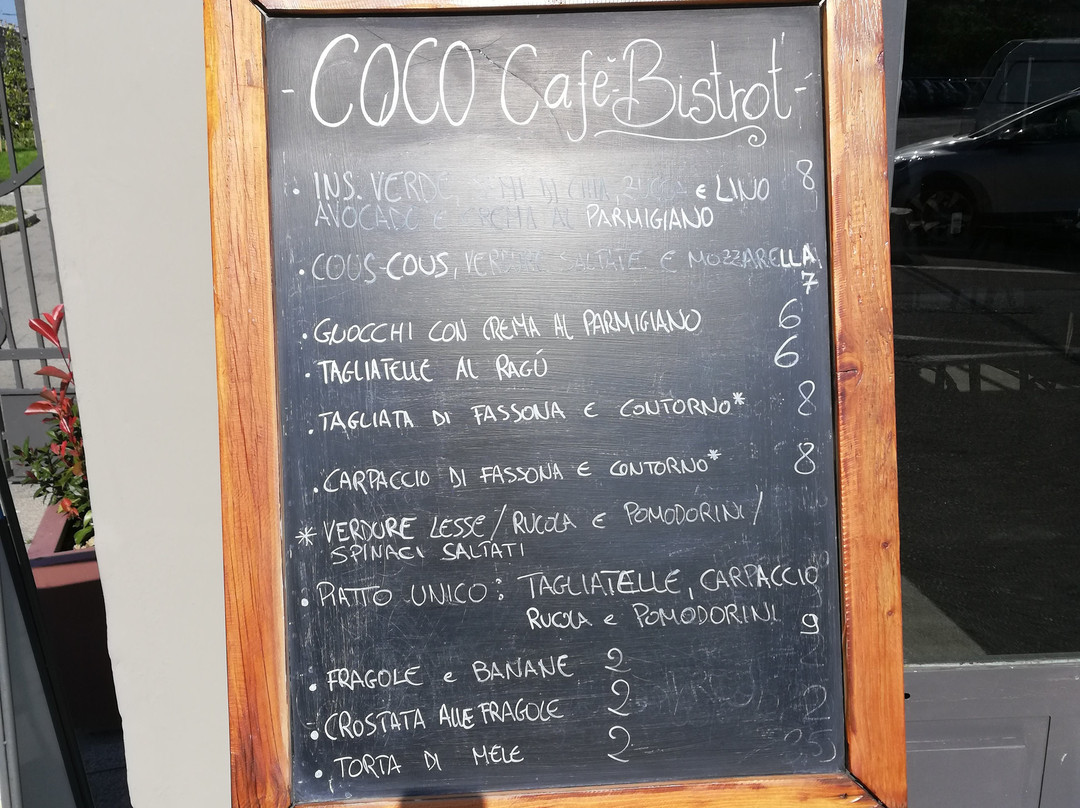 - COCO Cafè-Bistrot -
• INS. VERDE, SEMI DI CHIA, ZUCCA e LINO 8
AVOCADO E CREMA AL PARMIGIANO
• COUS-COUS, VERDURE SALTATE E MOZZARELLA
7
• GNOCCHI CON CREMA AL PARMIGIANO 6
• TAGLIATELLE AL RAGÚ 6
• TAGLIATA DI FASSONA E CONTORNO* 8
• CARPACCIO DI FASSONA E CONTORNO* 8
* VERDURE LESSE / RUCOLA e POMODORINI /
SPINACI SALTATI
• PIATTO UNICO: TAGLIATELLE, CARPACCIO
RUCOLA e POMODORINI 9
• FRAGOLE e BANANE 2
• CROSTATA ALLE FRAGOLE 2
• TORTA DI MELE 2